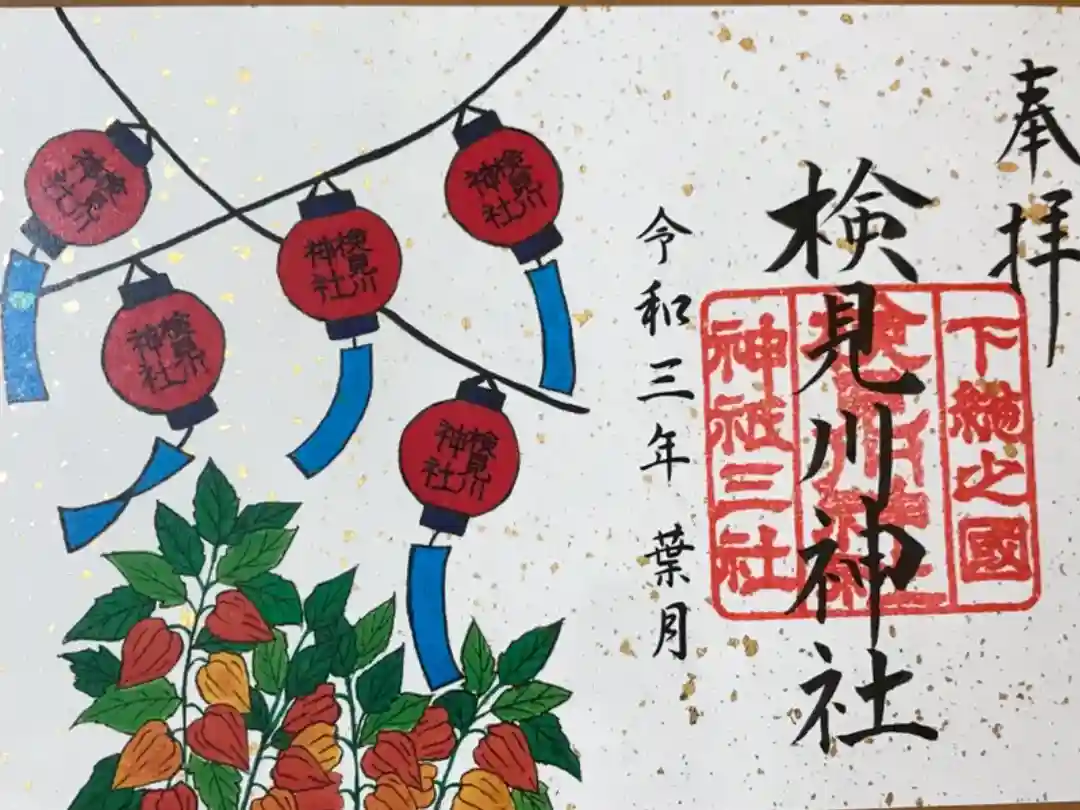 奉拝
検見川神社
下総之國
検見川神社
神祇三社
令和三年 葉月
検見川
神社
検見川
神社
検見川
神社
検見川
神社
検見川
神社